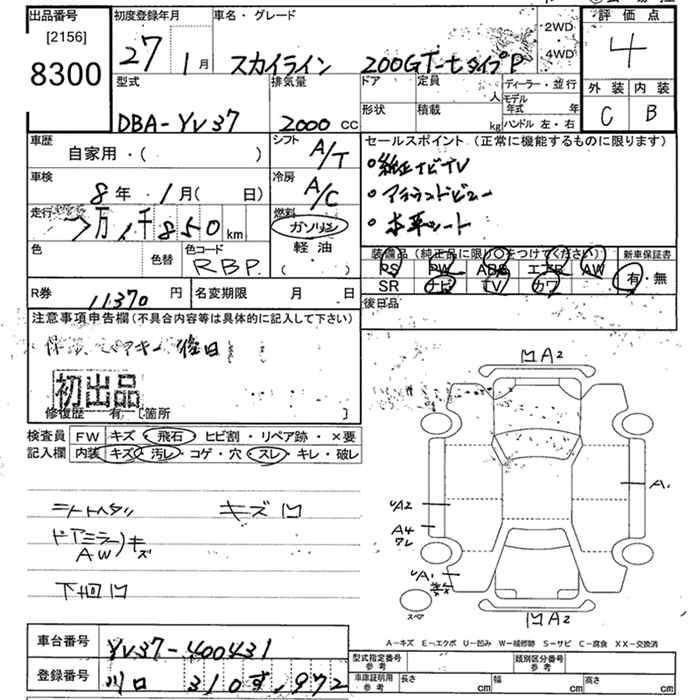 出品番号
[2156]
8300
初度登録年月
27 1月
車名・グレード
スカイライン 200GT-tタイプP
2WD
・
4WD
評価点
4
外装 内装
C B
型式
DBA-YV37
排気量
2000 CC
ドア
定員
人
形状
積載
kg
ディーラー・並行
モデル年式 年
ハンドル 左・右
車歴
自家用・( )
シフト
A/T
車検
8年 1月( 日)
冷房
A/C
走行
万 千850 km
燃料
ガソリン
軽油
( )
色
色替
色コード
RBP
R券 11370円
名変期限 月 日
セールスポイント (正常に機能するものに限ります)
純正ナビTV
アラウンドビュー
本革シート
装備品 (純正品に限り○をつけてください)
新車保証書
PS PW ABS エアB AW
SR ナビ TV カワ
有・無
後日品
注意事項申告欄(不具合内容等は具体的に記入して下さい)
後日
初出品
修復歴 有 [箇所 ]
検査員
記入欄
FW キズ・飛石・ヒビ割・リペア跡・×要
内装 キズ・汚レ・コゲ・穴・スレ・キレ・破レ
シートヘタリ キズ凹
ドアミラー)キズ
AW
下回凹
凹A2
A1
A2
A4
ワレ
A1
スペア
凹A2
A-キズ E-エクボ U-凹み W-補修跡 S-サビ C-腐食 XX-交換済
車台番号 YV37-400431
登録番号 川口 310す・972
型式指定番号
参考
類別区分番号
参考
車庫証明用
参考
長さ cm
幅 cm
高さ cm